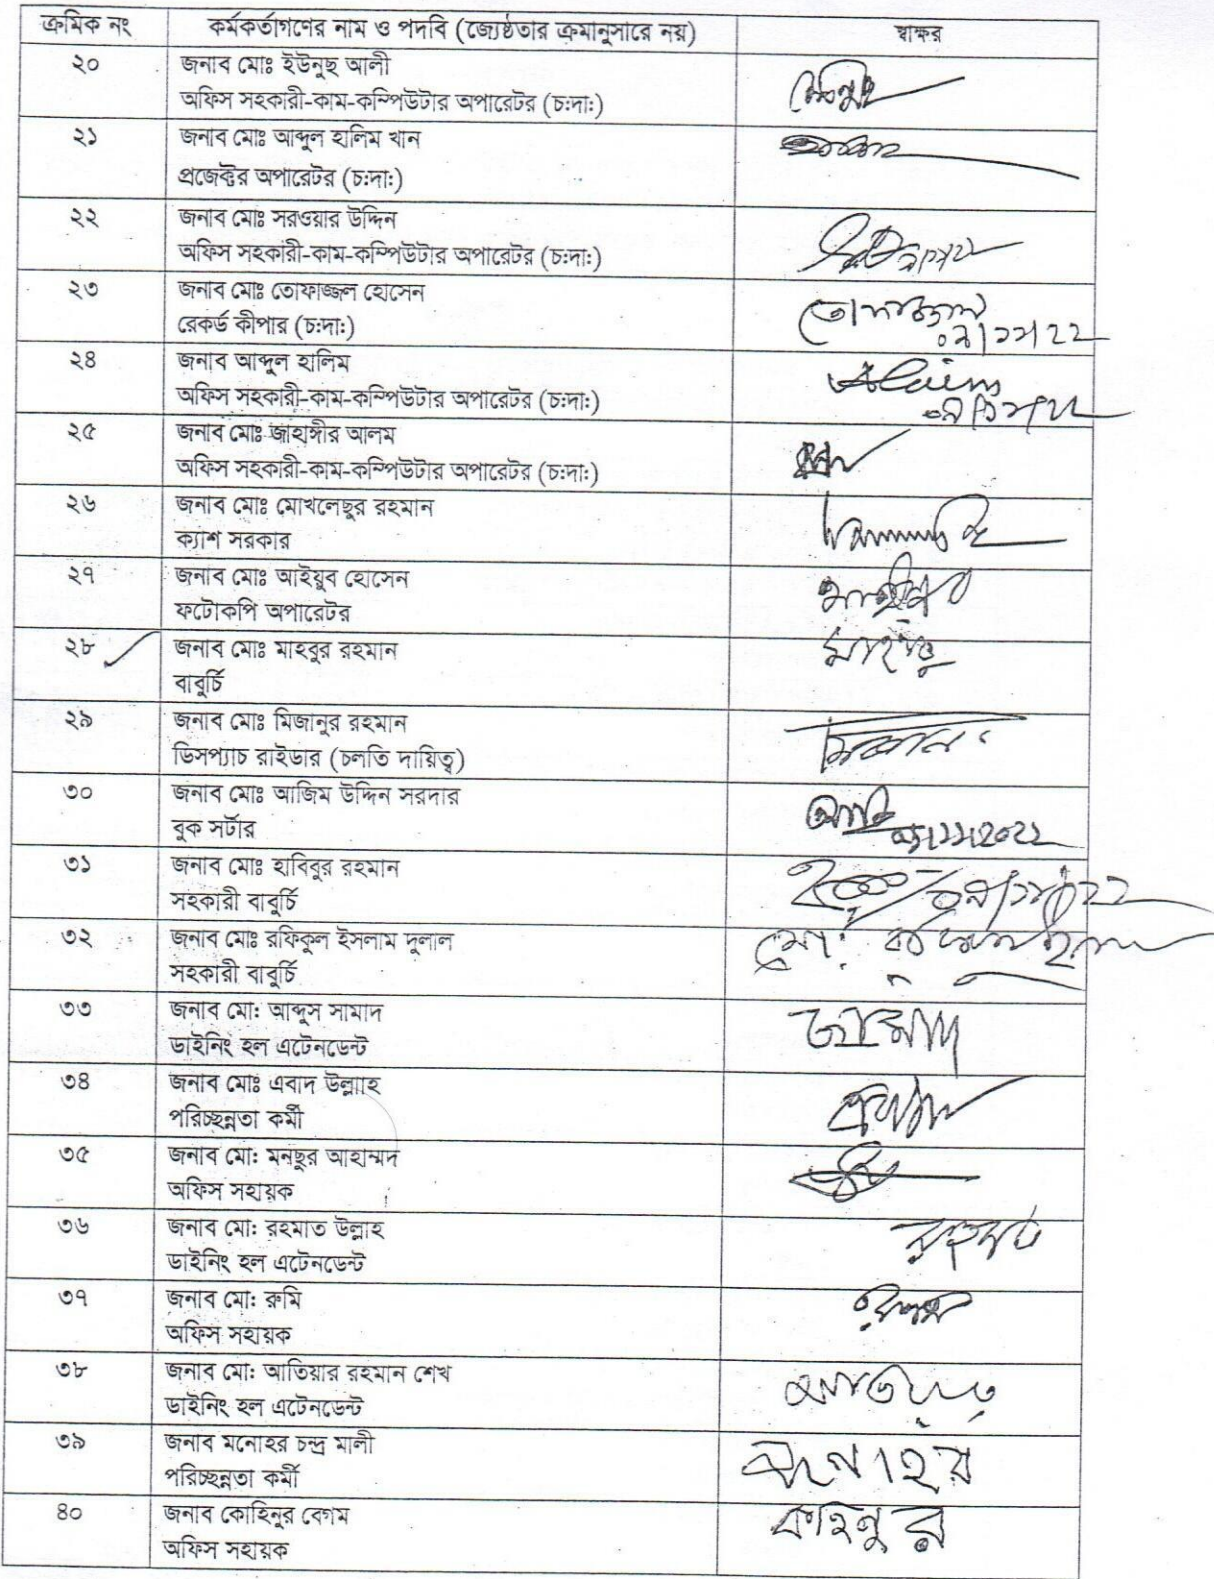 ক্রমিক নং কর্মকর্তাগণের নাম ও পদবি (জ্যেষ্ঠতার ক্রমানুসারে নয়) স্বাক্ষর
২০ জনাব মোঃ ইউনুছ আলী
অফিস সহকারী-কাম-কম্পিউটার অপারেটর (চ:দা:)
২১ জনাব মোঃ আব্দুল হালিম খান
প্রজেক্টর অপারেটর (চ:দা:)
২২ জনাব মোঃ সরওয়ার উদ্দিন
অফিস সহকারী-কাম-কম্পিউটার অপারেটর (চ:দা:)
২৩ জনাব মোঃ তোফাজ্জল হোসেন
রেকর্ড কীপার (চ:দা:)
০৯/১১/২২
২৪ জনাব আব্দুল হালিম
অফিস সহকারী-কাম-কম্পিউটার অপারেটর (চ:দা:)
২৫ জনাব মোঃ জাহাঙ্গীর আলম
অফিস সহকারী-কাম-কম্পিউটার অপারেটর (চ:দা:)
২৬ জনাব মোঃ মোখলেছুর রহমান
ক্যাশ সরকার
২৭ জনাব মোঃ আইয়ুব হোসেন
ফটোকপি অপারেটর
২৮ জনাব মোঃ মাহবুর রহমান
বাবুর্চি
২৯ জনাব মোঃ মিজানুর রহমান
ডিসপ্যাচ রাইডার (চলতি দায়িত্ব)
৩০ জনাব মোঃ আজিম উদ্দিন সরদার
বুক সর্টার
৩১ জনাব মোঃ হাবিবুর রহমান
সহকারী বাবুর্চি
৩২ জনাব মোঃ রফিকুল ইসলাম দুলাল
সহকারী বাবুর্চি
৩৩ জনাব মো: আব্দুস সামাদ
ডাইনিং হল এটেনডেন্ট
৩৪ জনাব মোঃ এবাদ উল্ল্যাহ
পরিচ্ছন্নতা কর্মী
৩৫ জনাব মো: মনছুর আহাম্মদ
অফিস সহায়ক
৩৬ জনাব মো: রহমাত উল্লাহ
ডাইনিং হল এটেনডেন্ট
৩৭ জনাব মো: রুমি
অফিস সহায়ক
৩৮ জনাব মো: আতিয়ার রহমান শেখ
ডাইনিং হল এটেনডেন্ট
৩৯ জনাব মনোহর চন্দ্র মালী মনোহর
পরিচ্ছন্নতা কর্মী
৪০ জনাব কোহিনুর বেগম কহিনুর
অফিস সহায়ক